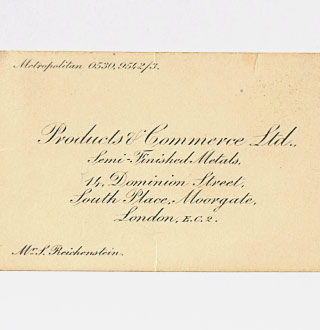 Metropolitan 0530, 9542/3.
Products & Commerce Ltd.,
Semi-Finished Metals,
14, Dominion Street,
South Place, Moorgate,
London, E.C. 2.
Mr. S. Reichenstein.